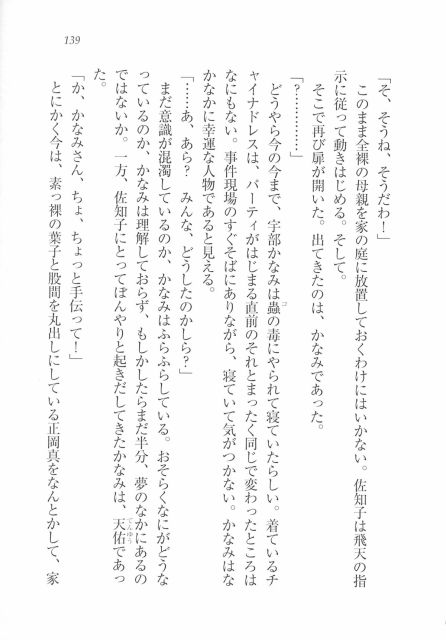 139
「そ、そうね、そうだわ！」
このまま全裸の母親を家の庭に放置しておくわけにはいかない。佐知子は飛天の指
示に従って動きはじめる。そして。
そこで再び扉が開いた。出てきたのは、かなみであった。
「？……………」
どうやら今の今まで、宇部かなみは蟲の毒にやられて寝ていたらしい。着ているチ
ャイナドレスは、パーティがはじまる直前のそれとまったく同じで変わったところは
なにもない。事件現場のすぐそばにありながら、寝ていて気がつかない。かなみはな
かなかに幸運な人物であると見える。
「……あ、あら？　みんな、どうしたのかしら？」
まだ意識が混濁しているのか、かなみはふらふらしている。おそらくなにがどうな
っているのか、かなみは理解しておらず、もしかしたらまだ半分、夢のなかにあるの
ではないか。一方、佐知子にとってぼんやりと起きだしてきたかなみは、天佑であっ
た。
「か、かなみさん、ちょ、ちょっと手伝って！」
とにかく今は、素っ裸の葉子と股間を丸出しにしている正岡真をなんとかして、家